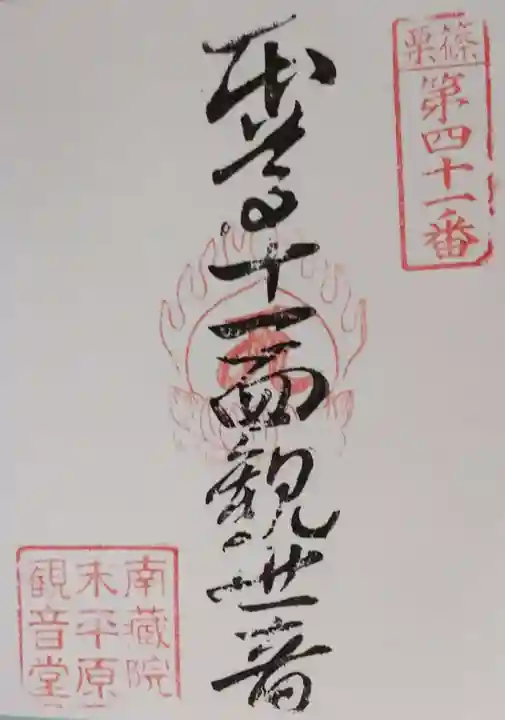 篠栗
第四十一番
本尊十一面観世音
南蔵院
木平原
観音堂